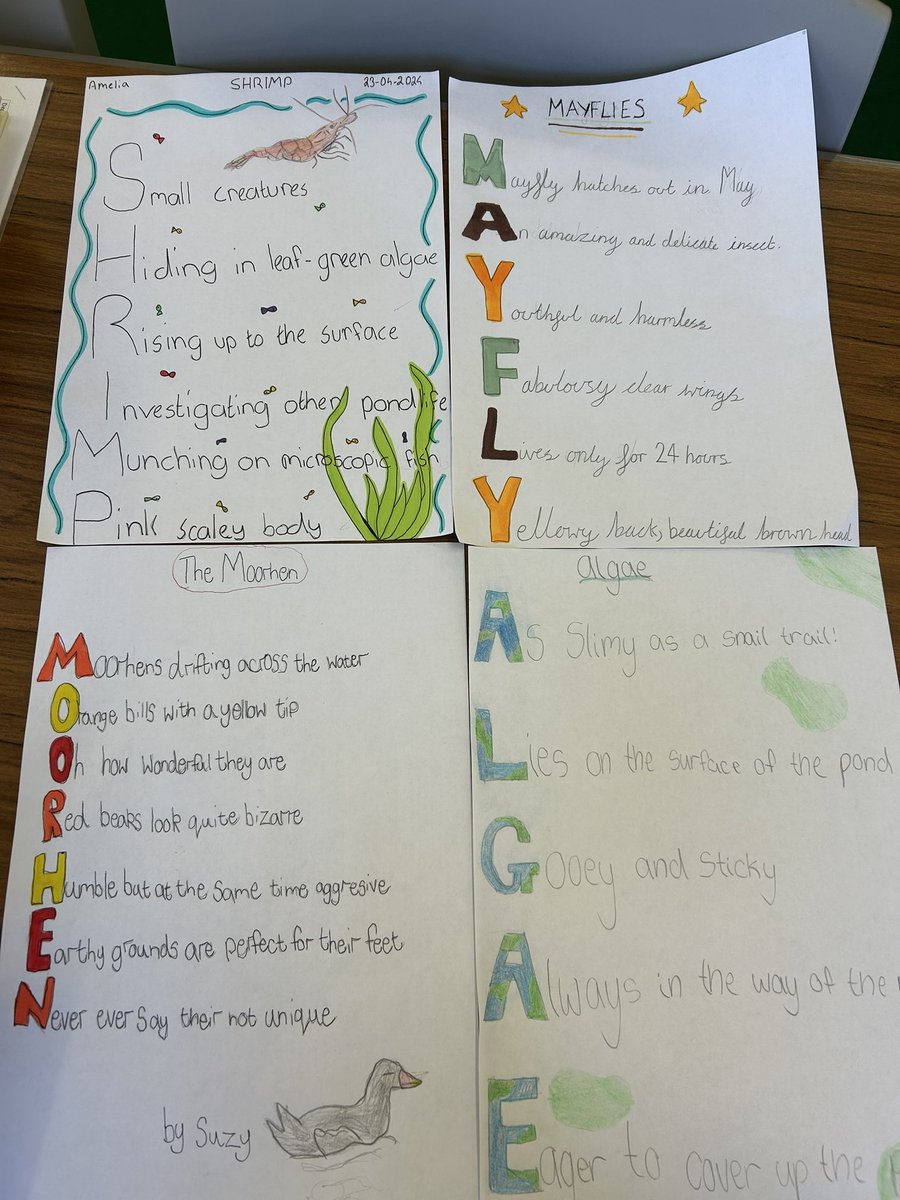 Amelia SHRIMP 23-04-2024
Small creatures
Hiding in leaf-green algae
Rising up to the surface
Investigating other pond life
Munching on microscopic fish
Pink scaley body
MAYFLIES
Mayfly hatches out in May
An amazing and delicate insect.
Youthful and harmless
Fabulovsy clear wings
Lives only for 24 hours
Yellowy back, beautiful brown head
The Moorhen
Moorhens drifting across the water
Orange bills with a yellow tip
Oh how wonderful they are
Red beaks look quite bizarre
Humble but at the same time aggresive
Earthy grounds are perfect for their feet
Never ever say their not unique
by Suzy
algae
As Slimy as a snail trail!
Lies on the surface of the pond
Gooey and Sticky
Always in the way of the
Eager to cover up the